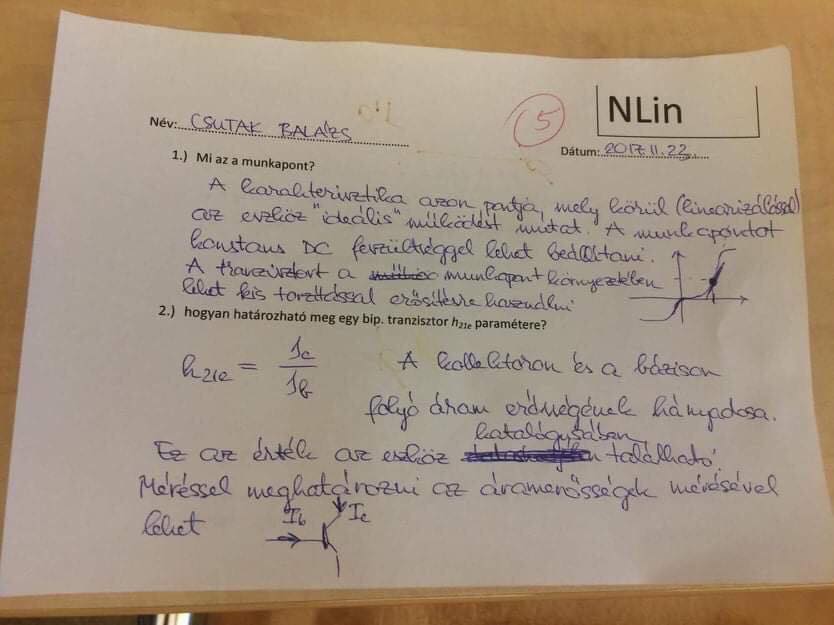 NLin
5
Név: CSUTAK BALÁZS
Dátum: 2017.11.22.
1.) Mi az a munkapont?
A karakterisztika azon pontja, mely körül (linearizálással)
az eszköz "ideális" működést mutat. A munkapontot
konstans DC feszültséggel lehet beállítani.
A tranzisztort a munkapont környezetében
lehet kis torzítással erősítésre használni
2.) hogyan határozható meg egy bip. tranzisztor h21e paramétere?
h21e = Ic / Ib
A kollektoron és a bázison
folyó áram erősségének hányadosa.
katalógusában
Ez az érték az eszköz található.
Méréssel meghatározni az áramerősségek mérésével
lehet
Ib Ic